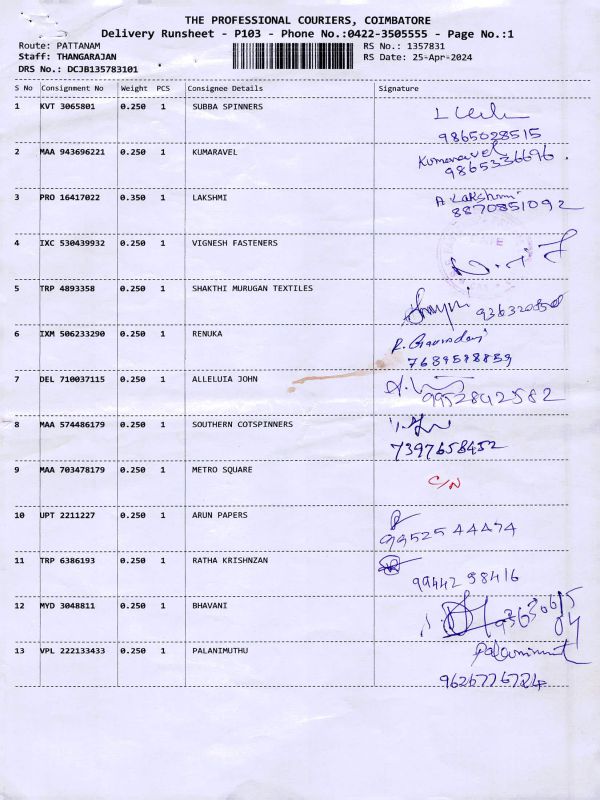 THE PROFESSIONAL COURIERS, COIMBATORE
Delivery Runsheet - P103 - Phone No.:0422-3505555 - Page No.:1
Route: PATTANAM RS No.: 1357831
Staff: THANGARAJAN RS Date: 25-Apr-2024
DRS No.: DCJB135783101
S No Consignment No Weight PCS Consignee Details Signature
1 KVT 3065801 0.250 1 SUBBA SPINNERS
9865028515
2 MAA 943696221 0.250 1 KUMARAVEL Kumaravel
9865336696.
3 PRO 16417022 0.350 1 LAKSHMI A Lakshmi
8870851092
4 IXC 530439932 0.250 1 VIGNESH FASTENERS
5 TRP 4893358 0.250 1 SHAKTHI MURUGAN TEXTILES
6 IXM 506233290 0.250 1 RENUKA
7639598859
7 DEL 710037115 0.250 1 ALLELUIA JOHN
9952842582
8 MAA 574486179 0.250 1 SOUTHERN COTSPINNERS
7397658452
9 MAA 703478179 0.250 1 METRO SQUARE C/N
10 UPT 2211227 0.250 1 ARUN PAPERS
9952544474
11 TRP 6386193 0.250 1 RATHA KRISHNZAN
9944258416
12 MYD 3048811 0.250 1 BHAVANI
13 VPL 222133433 0.250 1 PALANIMUTHU
9626776724